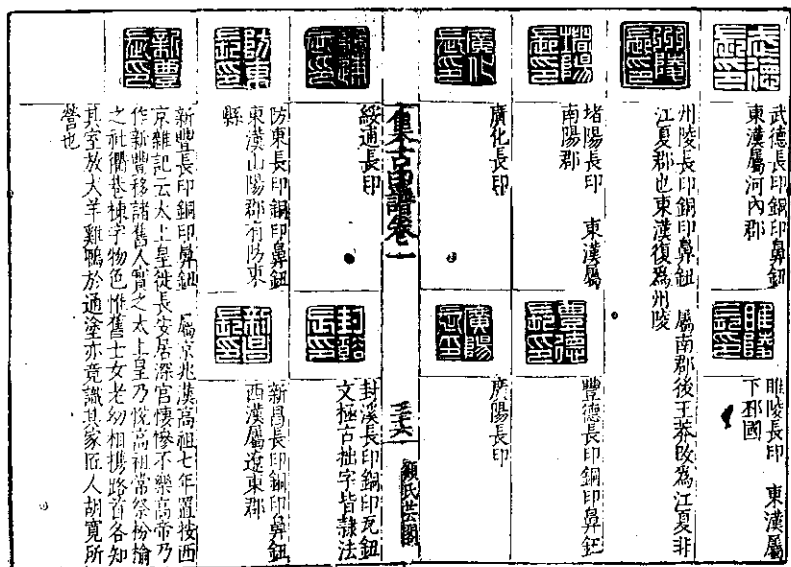 武德長印
武德長印銅印鼻鈕
東漢屬河內郡
睢陵長印
睢陵長印　東漢屬
下邳國
州陵長印
州陵長印銅印鼻鈕　屬南郡後王莽改爲江夏非
江夏郡也東漢復爲州陵
堵陽長印
堵陽長印　東漢屬
南陽郡
豐德長印
豐德長印銅印鼻鈕
廣化長印
廣化長印
廣陽長印
廣陽長印
集古印譜卷一
三十六
顧氏芸閣
綏逋長印
綏逋長印
封谿長印
封溪長印銅印瓦鈕
文極古拙字皆隸法
防東長印
防東長印銅印鼻鈕
東漢山陽郡有防東
縣
新昌長印
新昌長印銅印鼻鈕
西漢屬遼東郡
新豐長印
新豐長印銅印鼻鈕　屬京兆漢高祖七年置按西
京雜記云太上皇徙長安居深宮悽慘不樂高帝乃
作新豐移諸舊人實之太上皇乃悅高祖常祭枌榆
之社衢巷棟宇物色惟舊士女老幼相攜路首各知
其室放犬羊雞鴨於通塗亦竟識其家匠人胡寬所
營也